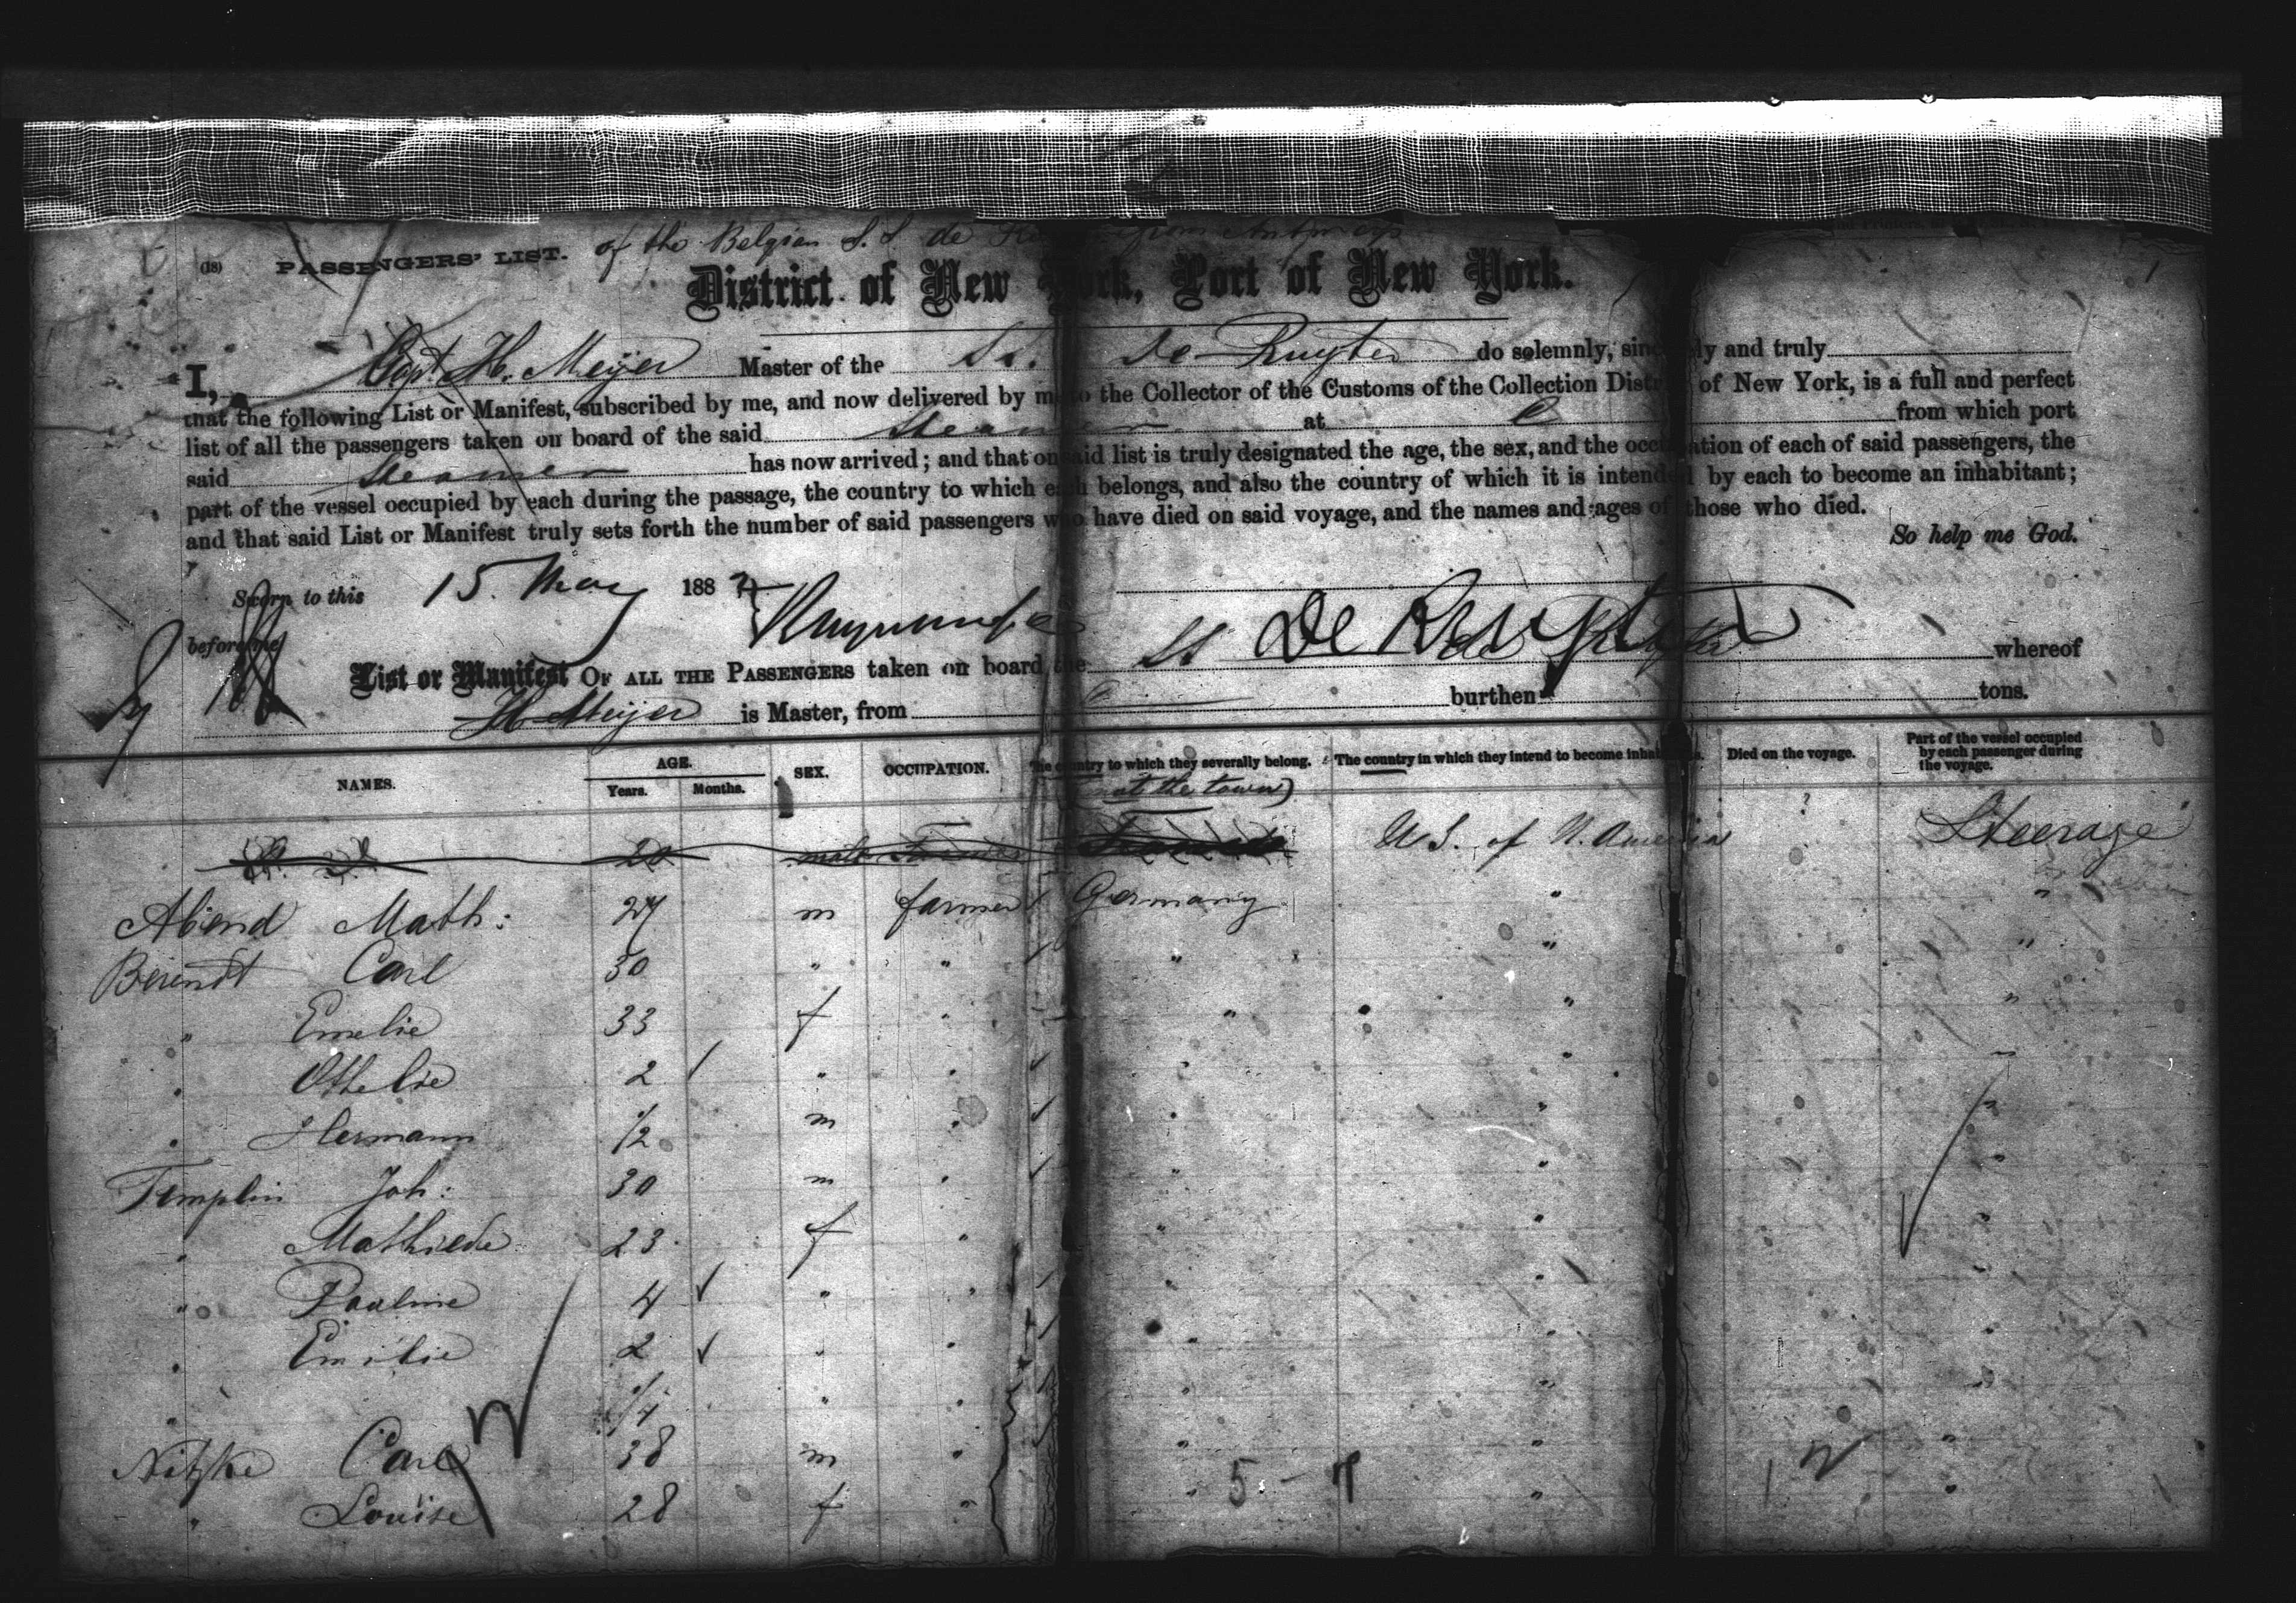 (18) PASSENGERS' LIST. of the Belgian S.S. de from Antwerp
District of New York, Port of New York.
I, Capt. H. Meijer Master of the Ss. De Ruyter do solemnly, sincerely and truly
that the following List or Manifest, subscribed by me, and now delivered by me to the Collector of the Customs of the Collection District of New York, is a full and perfect
list of all the passengers taken on board of the said Steamer at from which port
said Steamer has now arrived; and that on said list is truly designated the age, the sex, and the occupation of each of said passengers, the
part of the vessel occupied by each during the passage, the country to which each belongs, and also the country of which it is intended by each to become an inhabitant;
and that said List or Manifest truly sets forth the number of said passengers who have died on said voyage, and the names and ages of those who died.
So help me God.
Sworn to this 15. May 188
before me
De Ruyter
List or Manifest OF ALL THE PASSENGERS taken on board the SS de Ruyter whereof
H. Meijer is Master, from burthen tons.
NAMES. AGE. Years. Months. SEX. OCCUPATION. The country to which they severally belong. The country in which they intend to become inhabitants. Died on the voyage. Part of the vessel occupied by each passenger during the voyage.
(not the town)
20 male U.S. of N. America Steerage
Abend Math: 27 m farmer Germany " "
Berendt Carl 30 " " " " "
" Emelie 33 f " " " "
" Othelie 2 " " " " "
" Hermann 1/2 m " " " "
Templin Joh: 30 m " " " "
" Mathilde 23 f " " " "
" Pauline 4 " " " " "
" Emilie 2 " " " " "
" 1/4 " " " " "
Nitzke Carl 38 m " " " "
" Louise 28 f " " " "
5 - 7